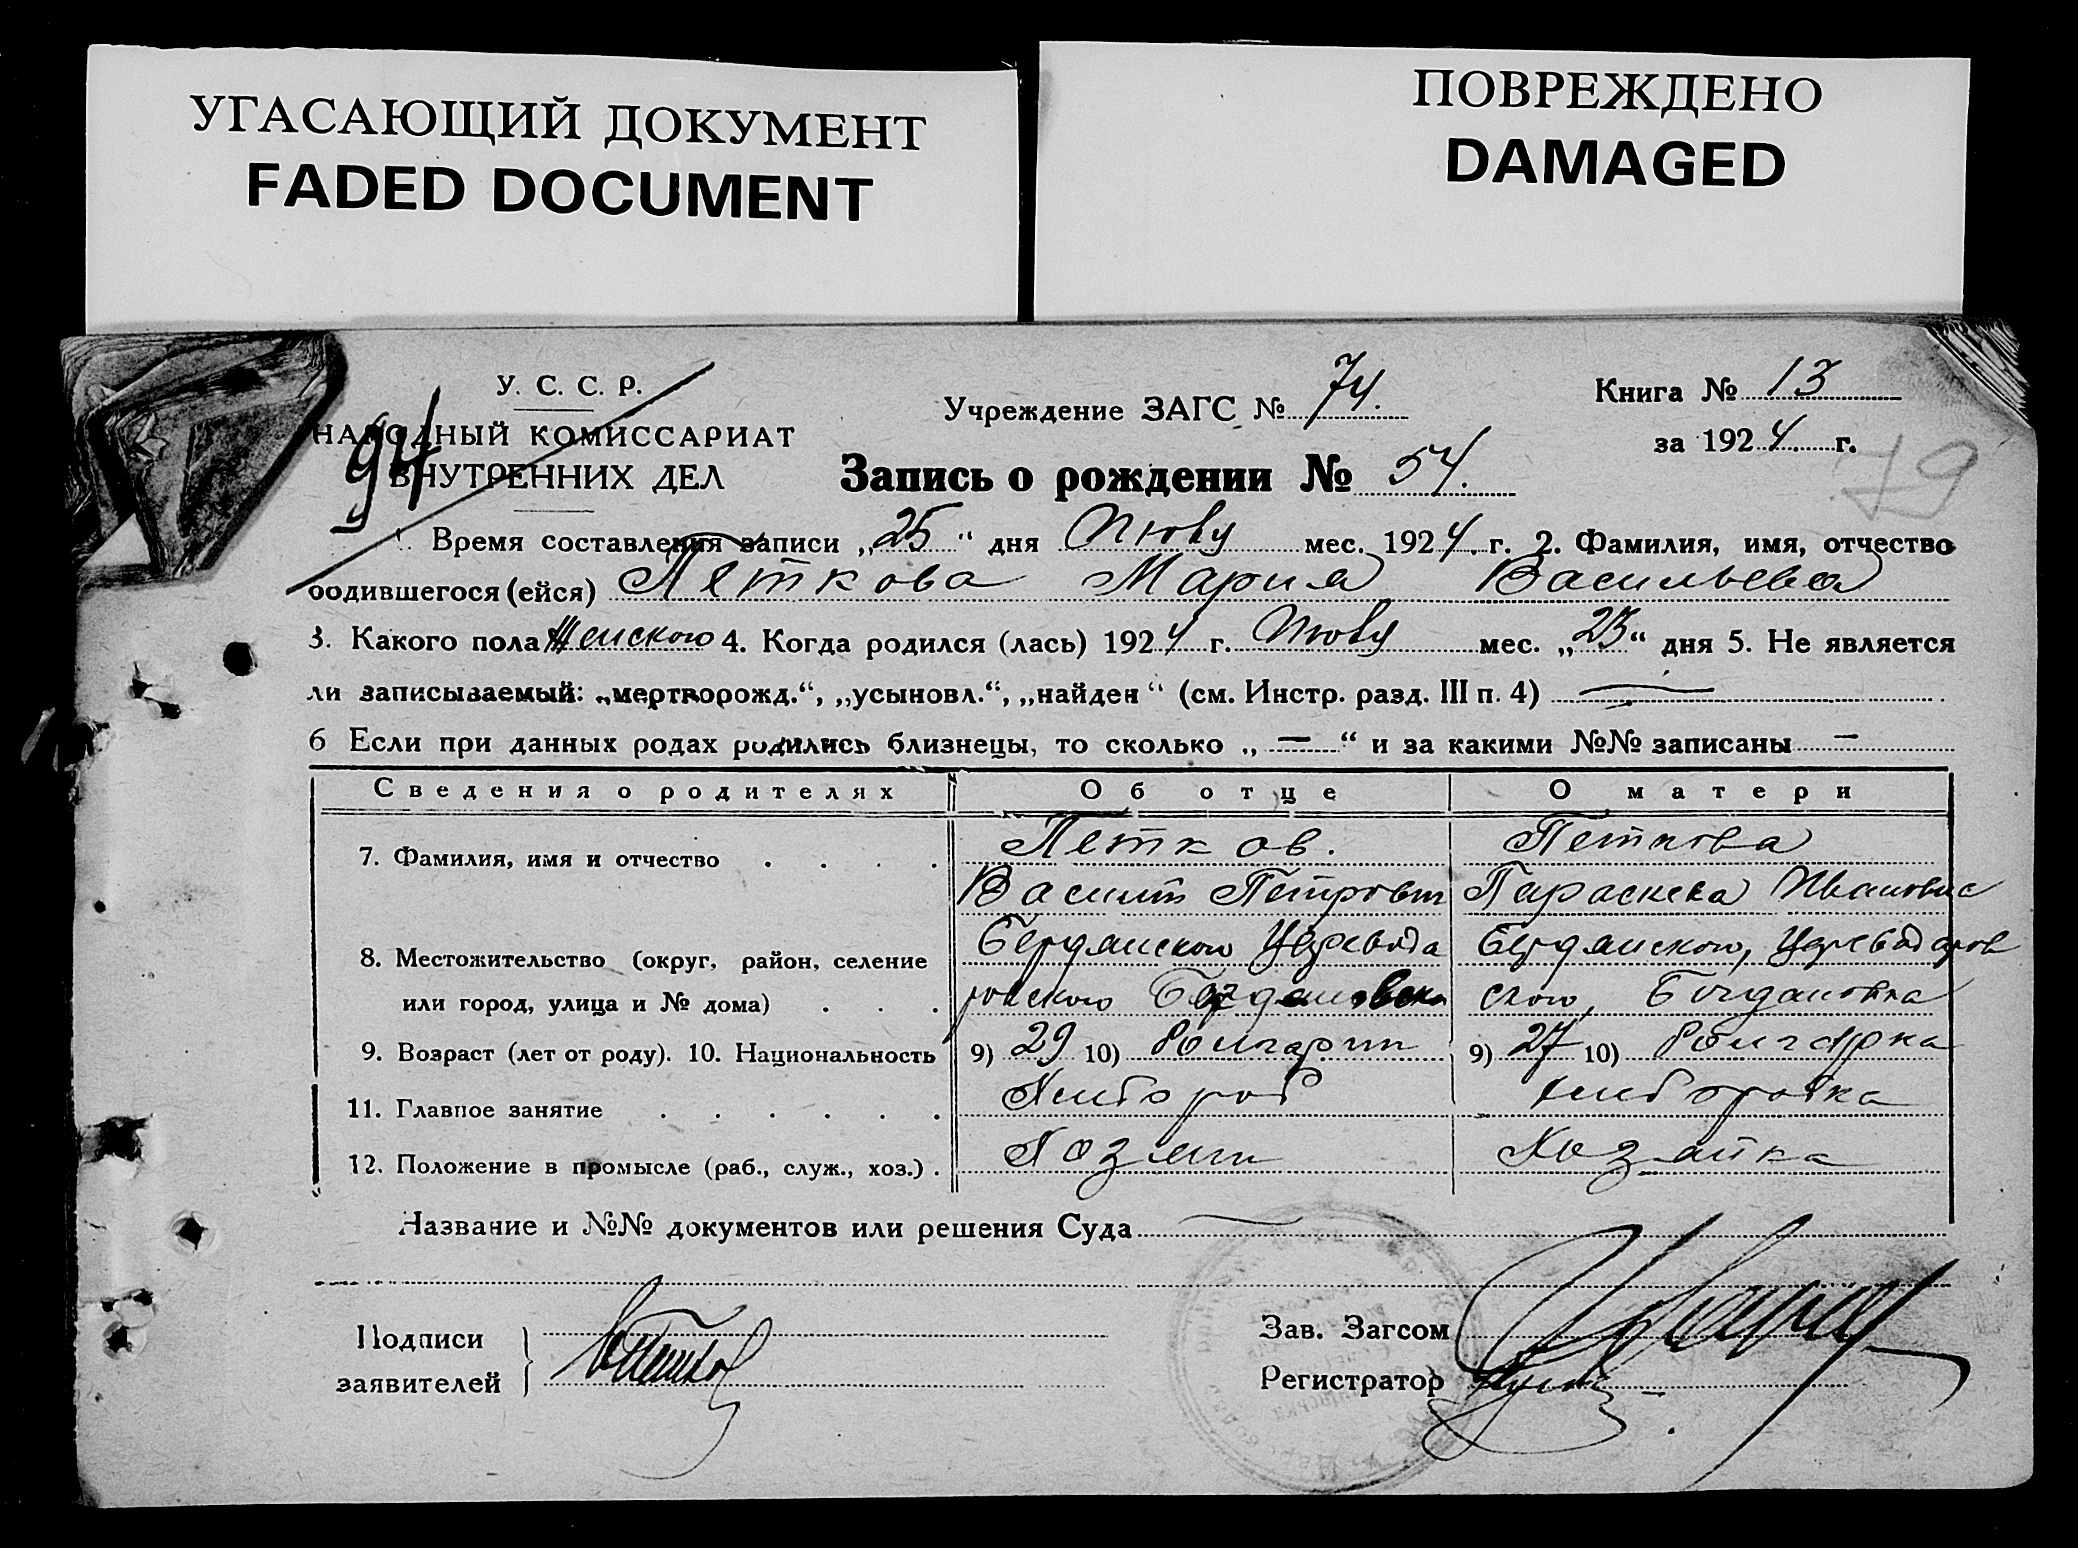 УГАСАЮЩИЙ ДОКУМЕНТ
FADED DOCUMENT
ПОВРЕЖДЕНО
DAMAGED
У. С. С. Р.
НАРОДНЫЙ КОМИССАРИАТ
ВНУТРЕННИХ ДЕЛ
94
Учреждение ЗАГС № 74.
Книга № 13
за 1924 г.
79
Запись о рождении № 54.
Время составления записи „25“ дня Июля мес. 1924 г. 2. Фамилия, имя, отчество
родившегося (ейся) Петкова Мария Васильева
3. Какого пола Женского 4. Когда родился (лась) 1924 г. Июля мес. „23“ дня 5. Не является
ли записываемый: „мертворожд.“, „усыновл.“, „найден“ (см. Инстр. разд. III п. 4) —
6 Если при данных родах родились близнецы, то сколько „ — “ и за какими №№ записаны —
Сведения о родителях Об отце О матери
7. Фамилия, имя и отчество . . . . Петков. Петкова
Василий Петрович Параскева Ивановна
8. Местожительство (округ, район, селение Бердянского Царевода Бердянского, Цареводаров
или город, улица и № дома) . . . ровского Богдановка ского, Богдановка
9. Возраст (лет от роду). 10. Национальность 9) 29 10) Болгарин 9) 27 10) Болгарка
11. Главное занятие . . . . . . Хлебороб Хлеборобка
12. Положение в промысле (раб., служ., хоз.) . Хозяин Хозяйка
Название и №№ документов или решения Суда —
Подписи
заявителей
В Петков
Зав. Загсом
Регистратор